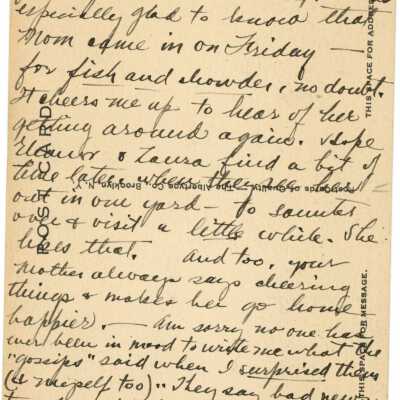 especially glad to know that
Mom came in on Friday —
for fish and chowder, no doubt.
It cheers me up to hear of her
getting around again. Hope
Eleanor & Laura find a bit of
time later when they are
out in our yard — to saunter
over & visit a little while. She
likes that. And too, your
mother always says cheering
things & makes her go home
happier. — Am sorry no one has
ever been in mood to write me what the
"gossips" said when I surprised them
(& myself too)". They say bad news
POST CARD
THIS SPACE FOR ADDRESS
THIS SPACE FOR MESSAGE.
Albertype Co., Brooklyn, N. Y.